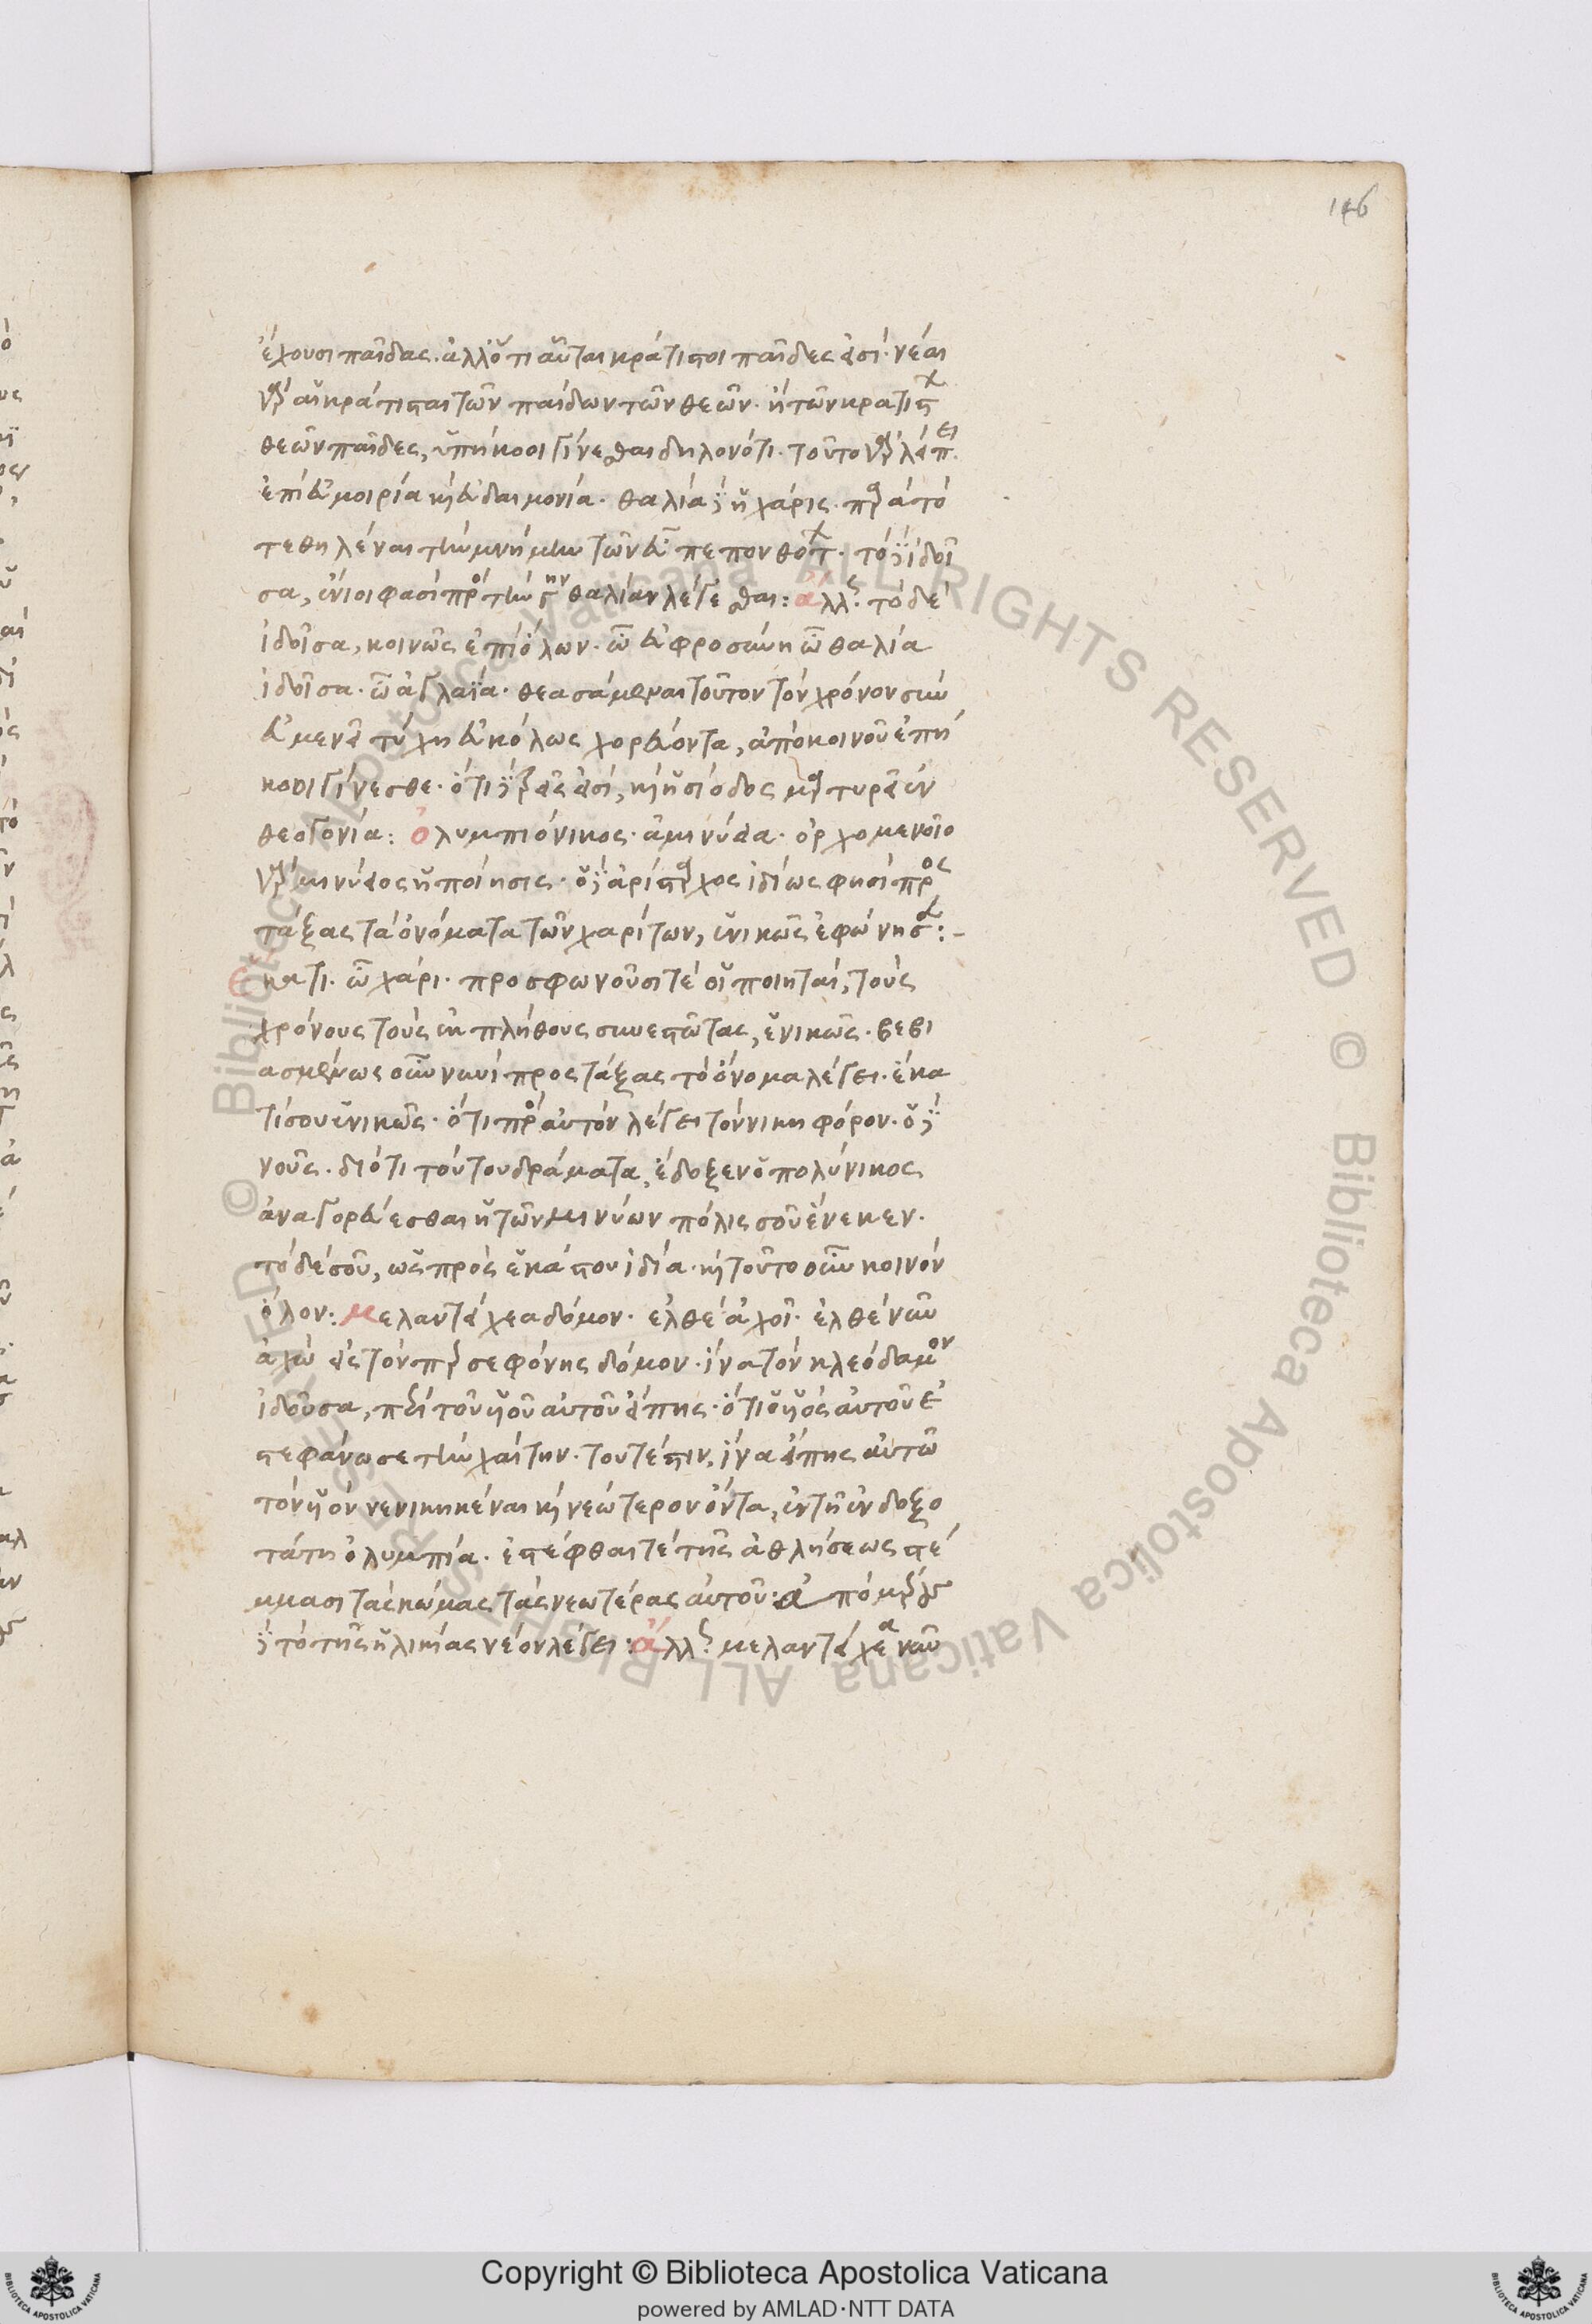 146
ἔχουσι παῖδας. ἀλλ' ὅτι αὗται κράτιστοι παῖδές εἰσι. νέαι
γὰρ αἱ κράτισται τῶν παίδων τῶν θεῶν. ἢ τῶν κρατίστων
θεῶν παῖδες, ὑπήκοοι γίνεσθαι δηλονότι. τοῦτο γὰρ λείπει
ἐπὶ εὐμοιρία καὶ εὐδαιμονία. θαλία δὲ ἡ χάρις. παρὰ τὸ
τεθηλέναι τὴν μνήμην τῶν εὖ πεπονθότων. τὸ δὲ ἰδοῖ
σα, ἔνιοι φασὶ πρὸς τὴν γ ην θαλίαν λέγεσθαι: ἄλλως. τὸ δὲ
ἰδοῖσα, κοινῶς ἐπὶ ὅλων. ὦ εὐφροσύνη ὦ θαλία
ἰδοῖσα. ὦ ἀγλαΐα. θεασάμεναι τοῦτον τὸν χρόνον σὺν
εὐμενεῖ τύχη εὐκόλως χορεύοντα, ἀπὸ κοινοῦ ἐπή
κοοι γίνεσθε. ὅτι δὲ τρεῖς εἰσί, καὶ ἡσίοδος μαρτυρεῖ ἐν
θεογονία: ὀλυμπιόνικος. ἁ μινύεια. ὀρχομενοῖο
γὰρ μινύειος ἡ ποίησις. ὁ δὲ ἀρίσταρχος ἰδίως φησὶ προς
τάξας τὰ ὀνόματα τῶν χαρίτων, ἑνικῶς ἐφώνησεν:-
Ἕκατι. ὦ χάρι. προσφωνοῦσι τὲ οἱ ποιηταί, τοὺς
χρόνους τοὺς ἐκ πλήθους συνεστῶτας, ἑνικῶς. βεβι
ασμένως οὖν νυνὶ προστάξας τὸ ὄνομα λέγει. ἕκα
τί σου ἑνικῶς. ὅτι πρὸς αὐτὸν λέγει τὸν νικηφόρον. ὁ δὲ
νοῦς. διότι τούτου δράματα, ἔδοξεν ὁ πολύνικος
ἀναγορεύεσθαι ἡ τῶν μινύων πόλις σοῦ ἕνεκεν.
τὸ δὲ σοῦ, ὡς πρὸς ἑκάστου ἰδία. καὶ τοῦτο οὖν κοινὸν
ὅλον: μελαντείχεα δόμον. ἐλθὲ ἀχοῖ. ἐλθὲ νῦν
ἀχὼ εἰς τὸν περσεφόνης δόμον. ἵνα τὸν κλεόδαμον
ἰδοῦσα, περὶ τοῦ υἱοῦ αὐτοῦ εἴπης. ὅτι ὁ υἱὸς αὐτοῦ ἐ
στεφάνωσε τὴν χαίτην. τουτέστιν, ἵνα εἴπης αὐτῶ
τὸν υἱὸν νενικηκέναι καὶ νεώτερον ὄντα, ἐν τῆ ἐνδοξο
τάτη ὀλυμπία. ἐστέφθαι τὲ τῆς ἀθλήσεως στέ
μμασι τὰς κώμας τὰς νεωτέρας αὐτοῦ. ἀπὸ μέρους
δὲ τὸ τῆς ἡλικίας νέον λέγει: ἄλλως. μελαντειχέα νῦν